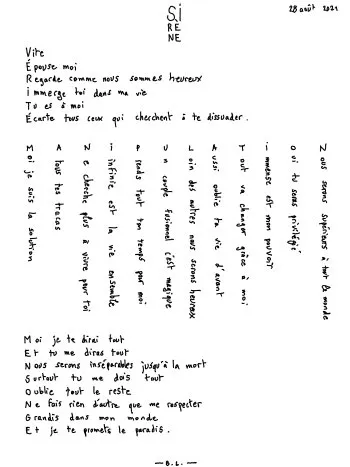 Si
RE
NE
28 août 2021
Vite
Épouse moi
Regarde comme nous sommes heureux
immerge toi dans ma vie
Tu es à moi
Écarte tous ceux qui cherchent à te dissuader.
Moi je suis la solution
A tous tes tracas
Ne cherche plus à vivre pour toi
infinie est la vie ensemble
Prends tout ton temps pour moi
Un couple fusionnel c'est magique
Loin des autres nous serons heureux
Aussi oublie ta vie d'avant
Tout va changer grâce à moi
immense est mon pouvoir
Oui tu seras privilégié
Nous serons supérieurs à tout le monde
Moi je te dirai tout
Et tu me diras tout
Nous serons inséparables jusqu'à la mort
Surtout tu me dois tout
Oublie tout le reste
Ne fais rien d'autre que me respecter
Grandis dans mon monde
Et je te promets le paradis.
— B.L. —